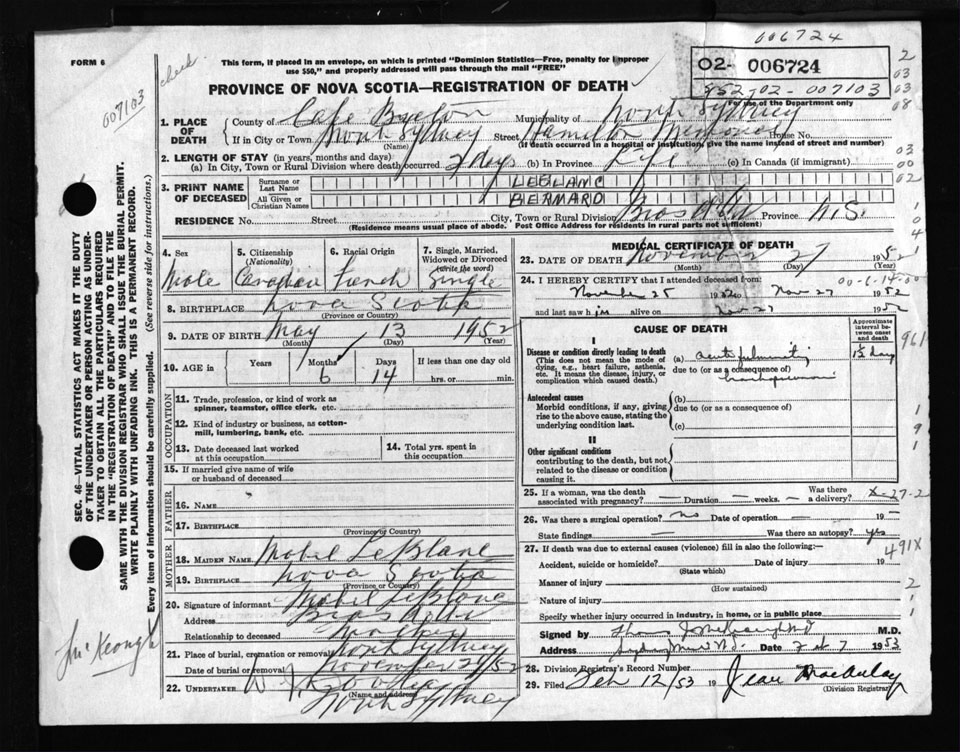 006724
FORM 6
This form, if placed in an envelope, on which is printed "Dominion Statistics—Free, penalty for improper
use $50," and properly addressed will pass through the mail "FREE"
02- 006724
952-02-007103
For use of the Department only
2
03
03
08
check
007103
PROVINCE OF NOVA SCOTIA—REGISTRATION OF DEATH
1. PLACE OF DEATH County of Cape Breton Municipality of North Sydney
If in City or Town North Sydney Street Hamilton Memorial House No.
(Name) (If death occurred in a hospital or institution, give the name instead of street and number)
2. LENGTH OF STAY (in years, months and days):
(a) In City, Town or Rural Division where death occurred 2 days (b) In Province Life (c) In Canada (if immigrant)
03
00
02
3. PRINT NAME OF DECEASED Surname or Last Name LEBLANC
All Given or Christian Names BERNARD
RESIDENCE No. Street City, Town or Rural Division Bras d'Or Province N.S.
(Residence means usual place of abode. Post Office Address for residents in rural parts not sufficient)
4. Sex 5. Citizenship (Nationality) 6. Racial Origin 7. Single, Married, Widowed or Divorced (write the word)
Male Canadian French Single
8. BIRTHPLACE Nova Scotia
(Province or Country)
9. DATE OF BIRTH May 13 1952
(Month) (Day) (Year)
10. AGE in Years Months Days If less than one day old
6 14 hrs. or min.
OCCUPATION
11. Trade, profession, or kind of work as
spinner, teamster, office clerk, etc.
12. Kind of industry or business, as cotton-
mill, lumbering, bank, etc.
13. Date deceased last worked at this occupation 14. Total yrs. spent in this occupation
15. If married give name of wife
or husband of deceased
FATHER
16. NAME
17. BIRTHPLACE
(Province or Country)
MOTHER
18. MAIDEN NAME Mabel LeBlanc
19. BIRTHPLACE Nova Scotia
(Province or Country)
20. Signature of informant Mabel LeBlanc
Address Bras d'Or
Relationship to deceased Mother
21. Place of burial, cremation or removal North Sydney
Date of burial or removal November 29/52
22. UNDERTAKER W. J.
(Name and address) North Sydney
MEDICAL CERTIFICATE OF DEATH
23. DATE OF DEATH November 27 1952
(Month) (Day) (Year)
24. I HEREBY CERTIFY that I attended deceased from: 00-6-14-00
November 25 1952 to Nov 27 1952
and last saw him alive on Nov 27 1952
CAUSE OF DEATH
Approximate interval between onset and death
I
Disease or condition directly leading to death
(This does not mean the mode of
dying, e.g., heart failure, asthenia,
etc. It means the disease, injury, or
complication which caused death.)
(a) acute fulminating
due to (or as a consequence of)
bronchopneumonia
1½ day
961
Antecedent causes
Morbid conditions, if any, giving
rise to the above cause, stating the
underlying condition last.
(b)
due to (or as a consequence of)
(c)
1
9
1
II
Other significant conditions
contributing to the death, but not
related to the disease or condition
causing it.
25. If a woman, was the death associated with pregnancy? — Duration — weeks. — Was there a delivery? X-27-2
26. Was there a surgical operation? no Date of operation — 19 —
State findings — Was there an autopsy? yes
27. If death was due to external causes (violence) fill in also the following:— 491X
Accident, suicide or homicide? Date of injury 19
(State which)
Manner of injury 2
(How sustained)
Nature of injury 1
Specify whether injury occurred in industry, in home, or in public place 1
Signed by M.D.
Address Sydney Mines N.S. Date Feb 7 1953
28. Division Registrar's Record Number
29. Filed Feb 12/53 19 Jean MacAulay
(Division Registrar)
SEC. 46—VITAL STATISTICS ACT MAKES IT THE DUTY
OF THE UNDERTAKER OR PERSON ACTING AS UNDER-
TAKER TO OBTAIN ALL THE PARTICULARS REQUIRED
IN THE "REGISTRATION OF DEATH" AND TO FILE THE
SAME WITH THE DIVISION REGISTRAR WHO SHALL ISSUE THE BURIAL PERMIT.
WRITE PLAINLY WITH UNFADING INK. THIS IS A PERMANENT RECORD.
Every item of information should be carefully supplied. (See reverse side for instructions.)
McKeough